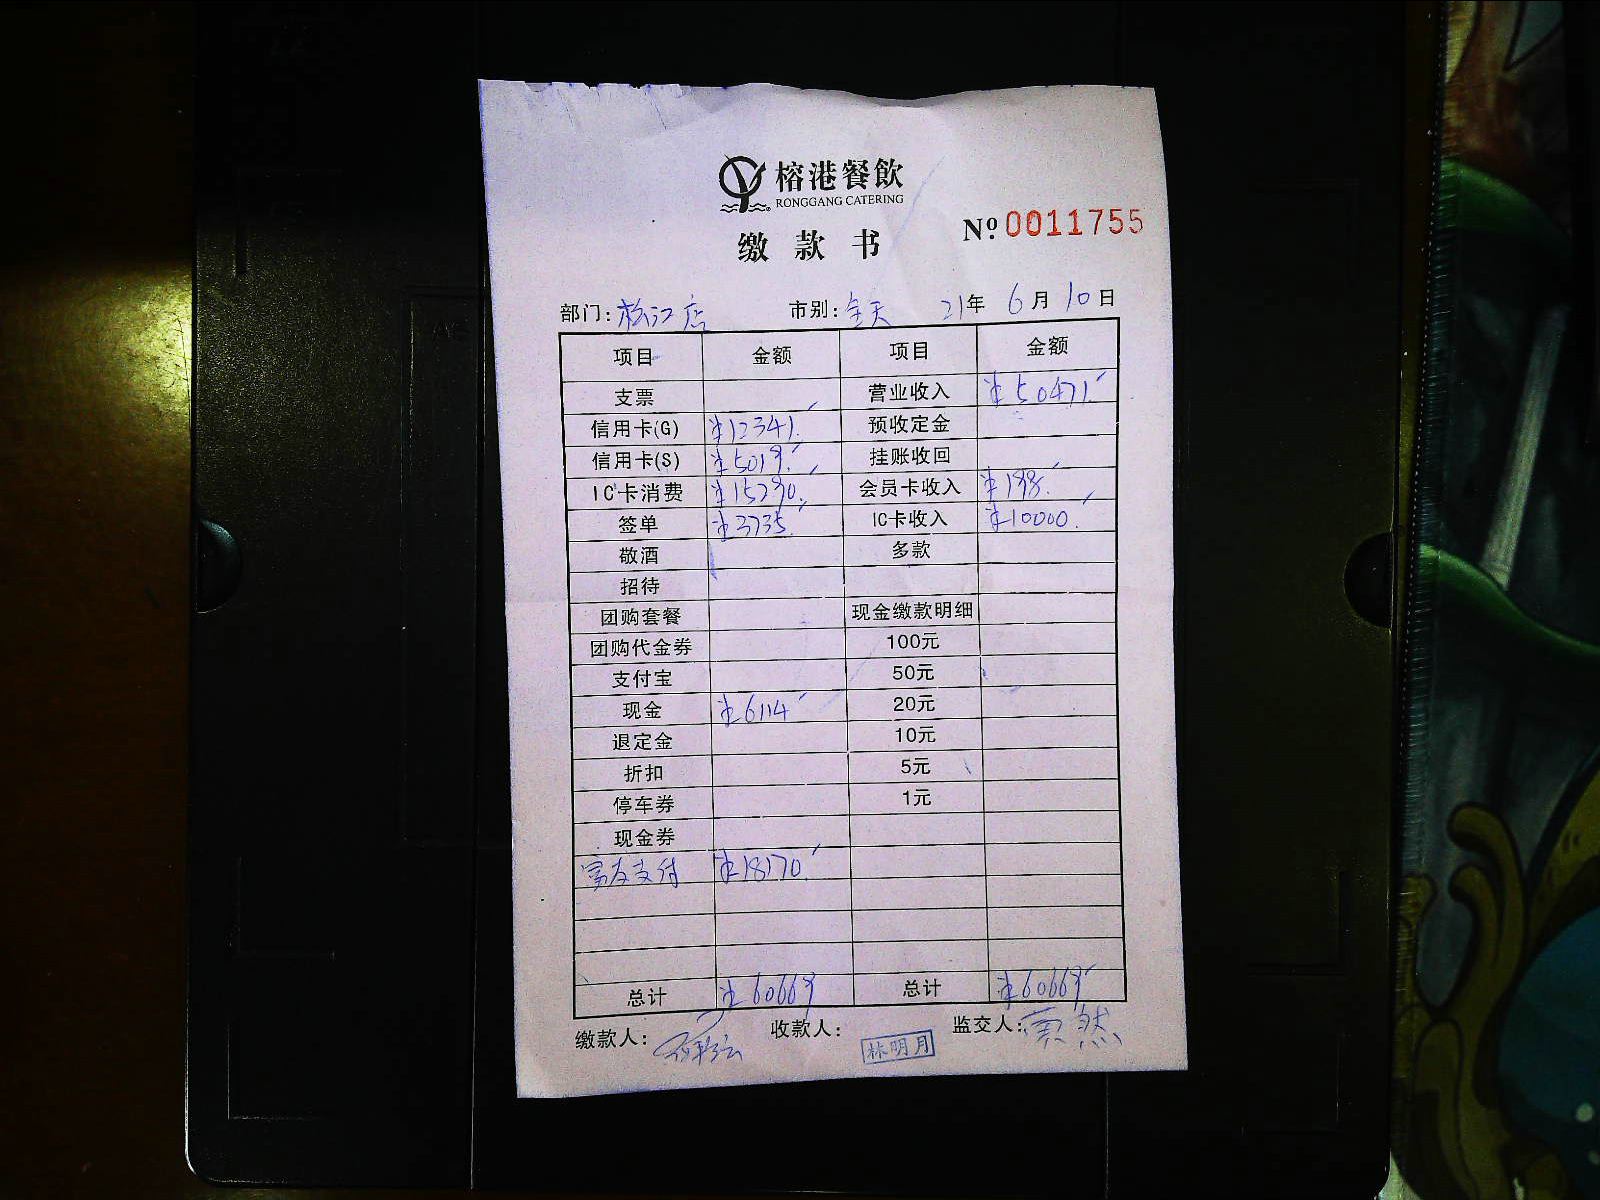 榕港餐飲
RONGGANG CATERING
缴款书 Nº 0011755
部门：松江店 市别：全天 21年 6月 10日
项目 金额 项目 金额
支票 营业收入 ¥50471.
信用卡(G) ¥12341. 预收定金
信用卡(S) ¥5019. 挂账收回
IC卡消费 ¥15290. 会员卡收入 ¥198.
签单 ¥3735. IC卡收入 ¥10000.
敬酒 多款
招待
团购套餐 现金缴款明细
团购代金券 100元
支付宝 50元
现金 ¥6114 20元
退定金 10元
折扣 5元
停车券 1元
现金券
富友支付 ¥18170.
总计 ¥60669 总计 ¥60669
缴款人： 收款人：林明月 监交人：